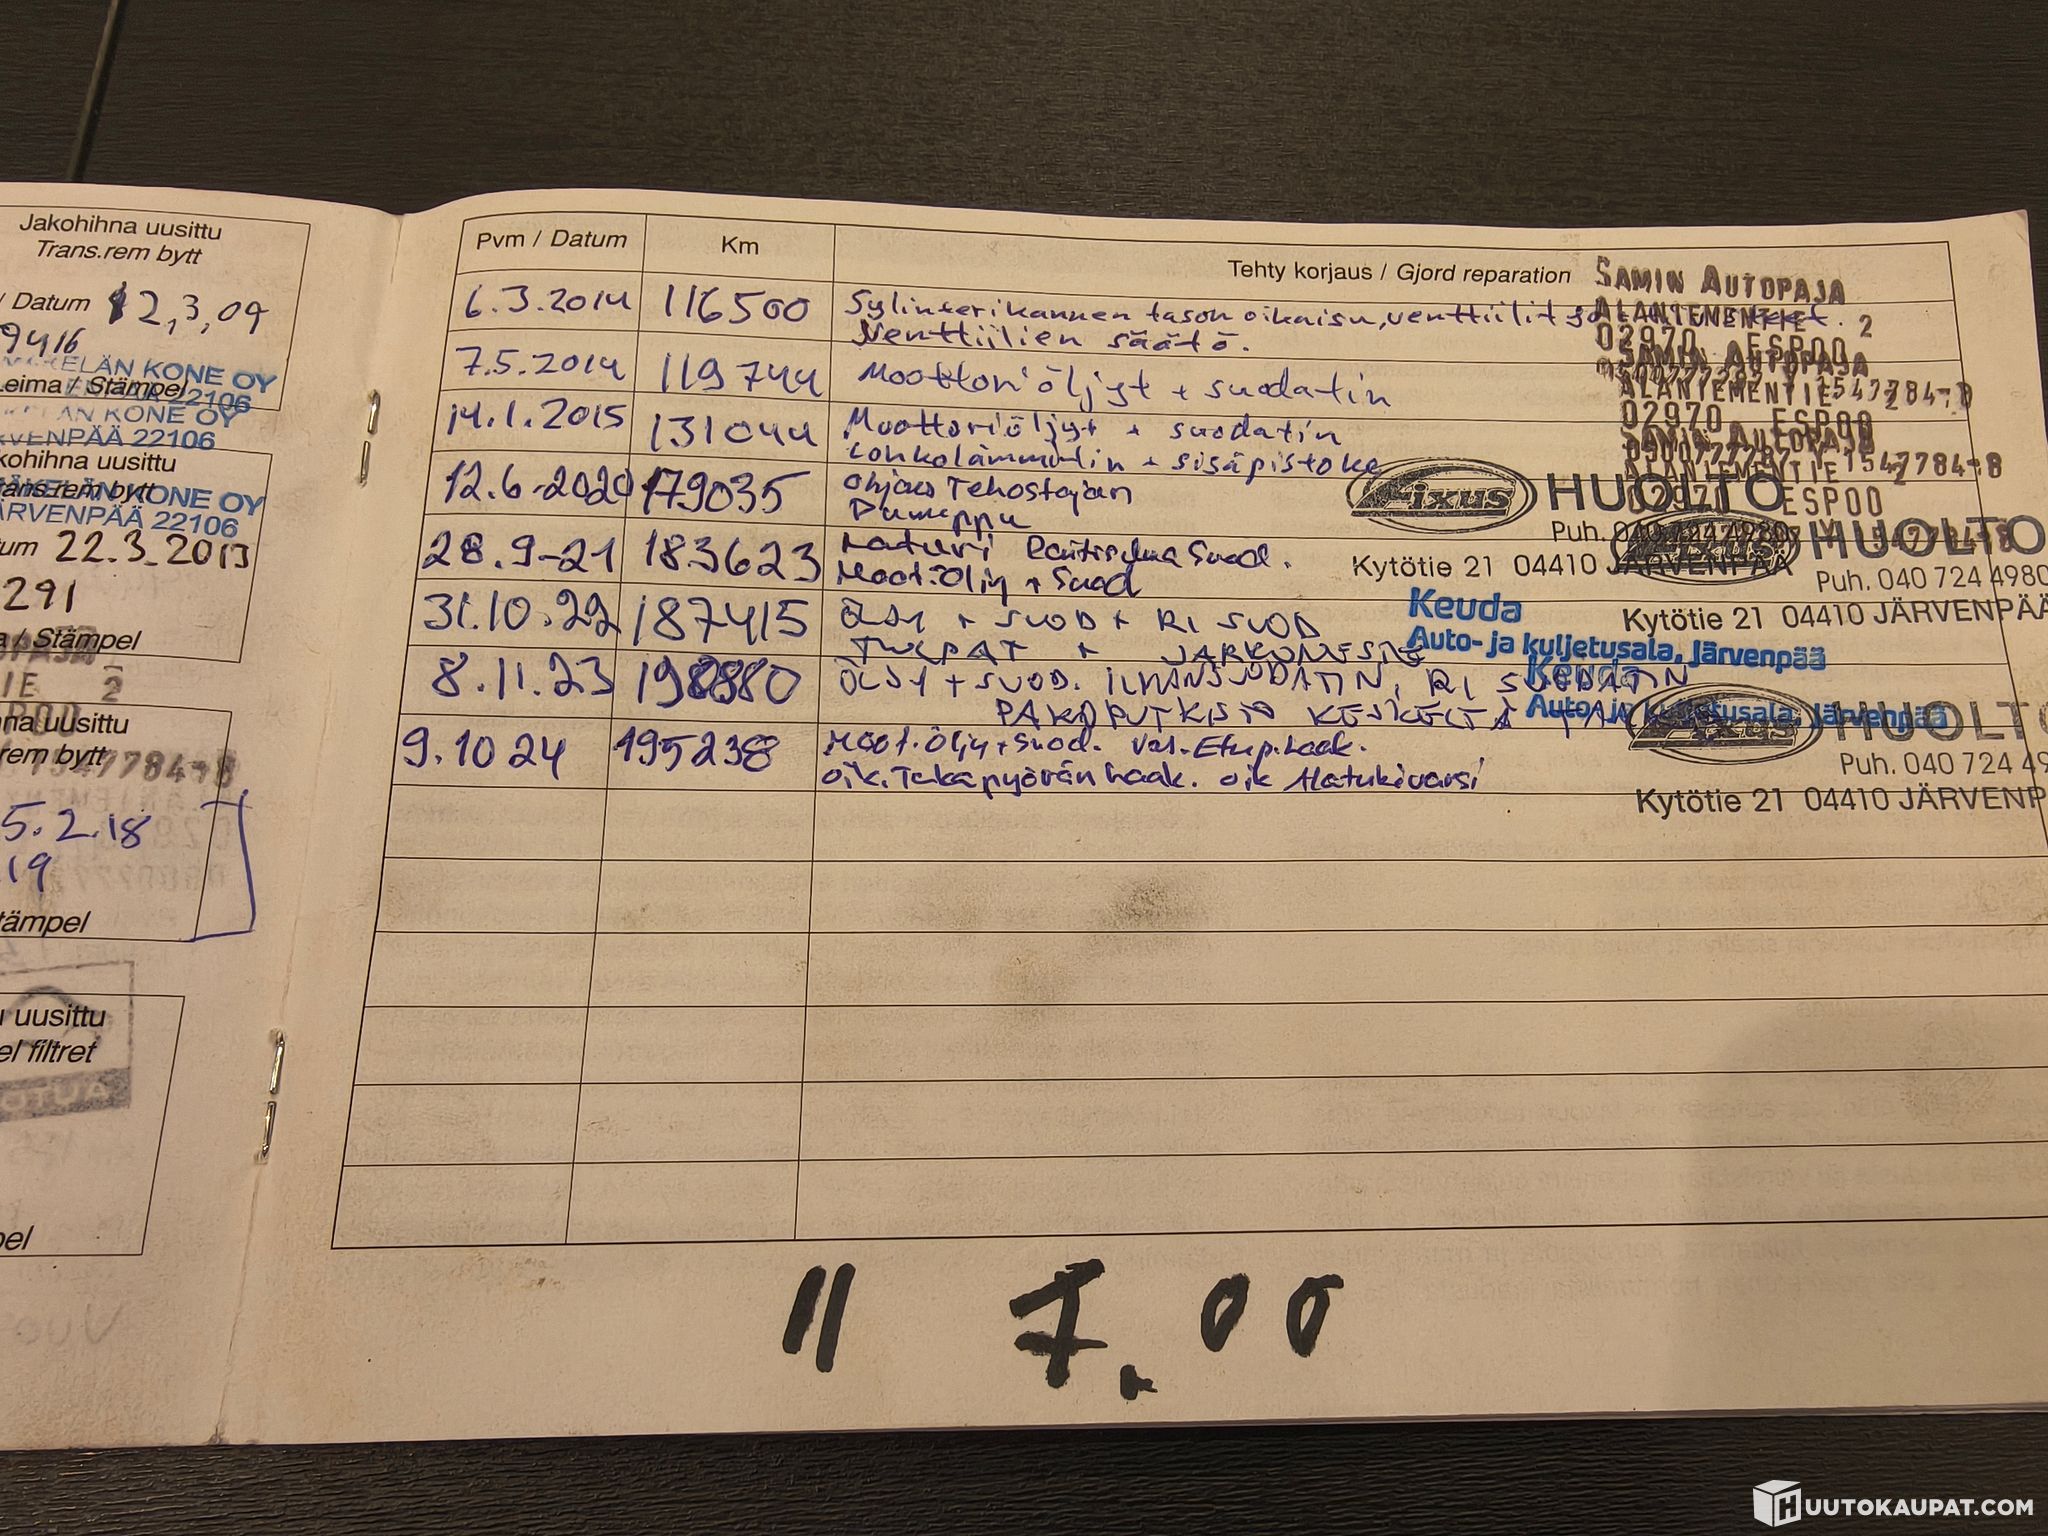 Jakohihna uusittu
Trans.rem bytt
/ Datum 12.3.09
9416
KELÄN KONE OY
Leima / Stämpel
22106
KONE OY
RVENPÄÄ 22106
kohihna uusittu
Trans.rem bytt
KELÄN KONE OY
ÄRVENPÄÄ 22106
tum 22.3.2013
291
a / Stämpel
2
na uusittu
rem bytt
5.2.18
19
tämpel
uusittu
el filtret
pel
Pvm / Datum Km Tehty korjaus / Gjord reparation
6.3.2014 116500 Sylinterikannen tason oikaisu, venttiilit
Venttiilien säätö.
7.5.2014 119744 Moottoriöljyt + suodatin
14.1.2015 131044 Moottoriöljyt + suodatin
Lohkolämmitin + sisäpistoke
12.6-2020 179035 Ohjaus Tehostajan
Pumppu
28.9-21 183623 Raitisilma Suod.
Moot.Öljy + Suod
31.10.22 187415 ÖLJY + SUOD + RI SUOD
TULPAT +
8.11.23 ÖLJY + SUOD. ILMANSUODATIN, RI SUODATIN
PAKOPUTKISTO KESKELTÄ
9.10 24 195238 Moot.Öljy+Suod. Vas.Etup.Laak.
oik.Takapyörän Laak. oik Alatukivarsi
SAMIN AUTOPAJA
ALANTEMENTIE 2
02970 ESPOO
SAMIN AUTOPAJA
ALANTEMENTIE 2
02970 ESPOO
SAMIN AUTOPAJA
ALANTEMENTIE 2
02970 ESPOO
Fixus HUOLTO
Puh. 040 724 4980
Kytötie 21 04410 JÄRVENPÄÄ
Fixus HUOLTO
Puh. 040 724 4980
Kytötie 21 04410 JÄRVENPÄÄ
Keuda
Auto- ja kuljetusala, Järvenpää
Keuda
Auto- ja kuljetusala, Järvenpää
HUOLTO
Puh. 040 724 49
Kytötie 21 04410 JÄRVENP
11 7.00
HUUTOKAUPAT.COM